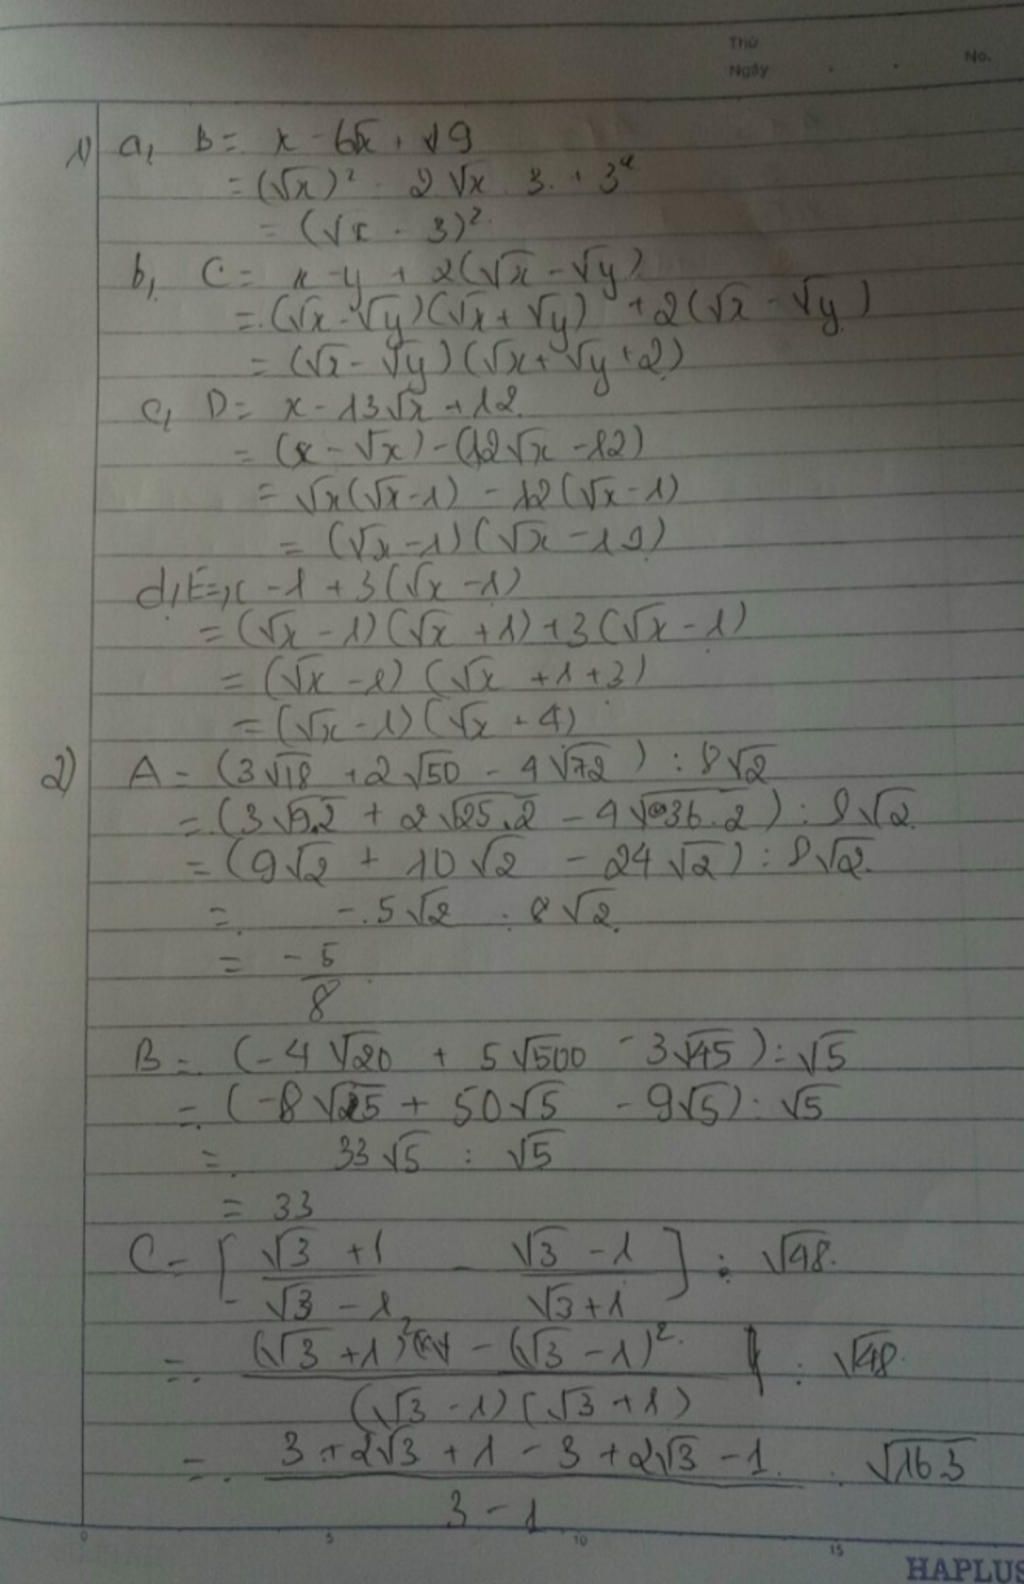 Thứ
Ngày . . No.
1) a, B = x - 6√x + 9
= (√x)² - 2√x . 3 + 3²
= (√x - 3)²
b, C = x - y + 2(√x - √y)
= (√x - √y)(√x + √y) + 2(√x - √y)
= (√x - √y)(√x + √y + 2)
c, D = x - 13√x + 12
= (x - √x) - (12√x - 12)
= √x(√x - 1) - 12(√x - 1)
= (√x - 1)(√x - 12)
d, E = x - 1 + 3(√x - 1)
= (√x - 1)(√x + 1) + 3(√x - 1)
= (√x - 1)(√x + 1 + 3)
= (√x - 1)(√x + 4)
2) A = (3√18 + 2√50 - 4√72) : 8√2
= (3√9.2 + 2√25.2 - 4√36.2) : 8√2
= (9√2 + 10√2 - 24√2) : 8√2
= -5√2 : 8√2
= -5/8
B = (-4√20 + 5√500 - 3√45) : √5
= (-8√5 + 50√5 - 9√5) : √5
= 33√5 : √5
= 33
C = [(√3 + 1)/(√3 - 1) - (√3 - 1)/(√3 + 1)] : √48
= ((√3 + 1)² - (√3 - 1)²)/((√3 - 1)(√3 + 1)) : √48
= (3 + 2√3 + 1 - 3 + 2√3 - 1)/(3 - 1) : √16.3
0 5 10 15
HAPLUS